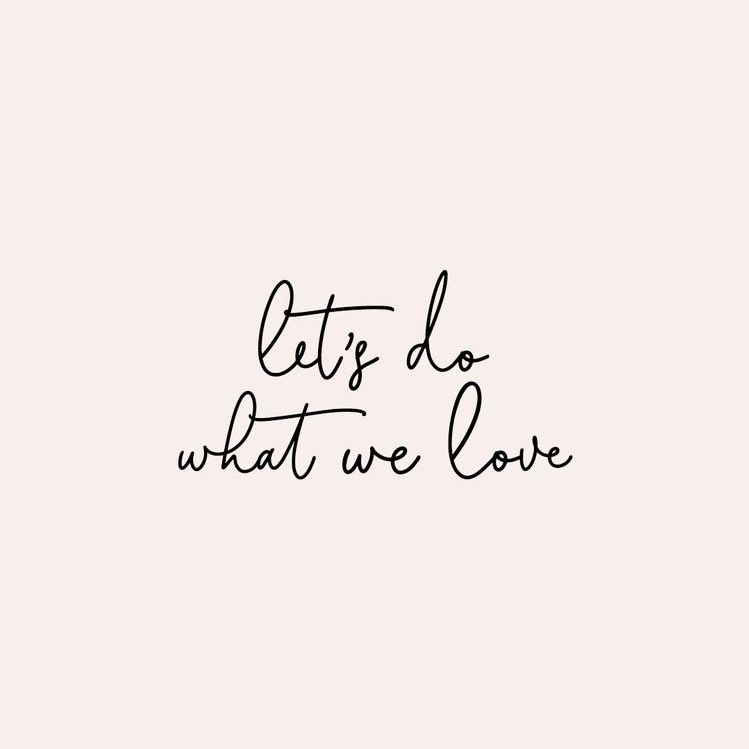 let's do
what we love